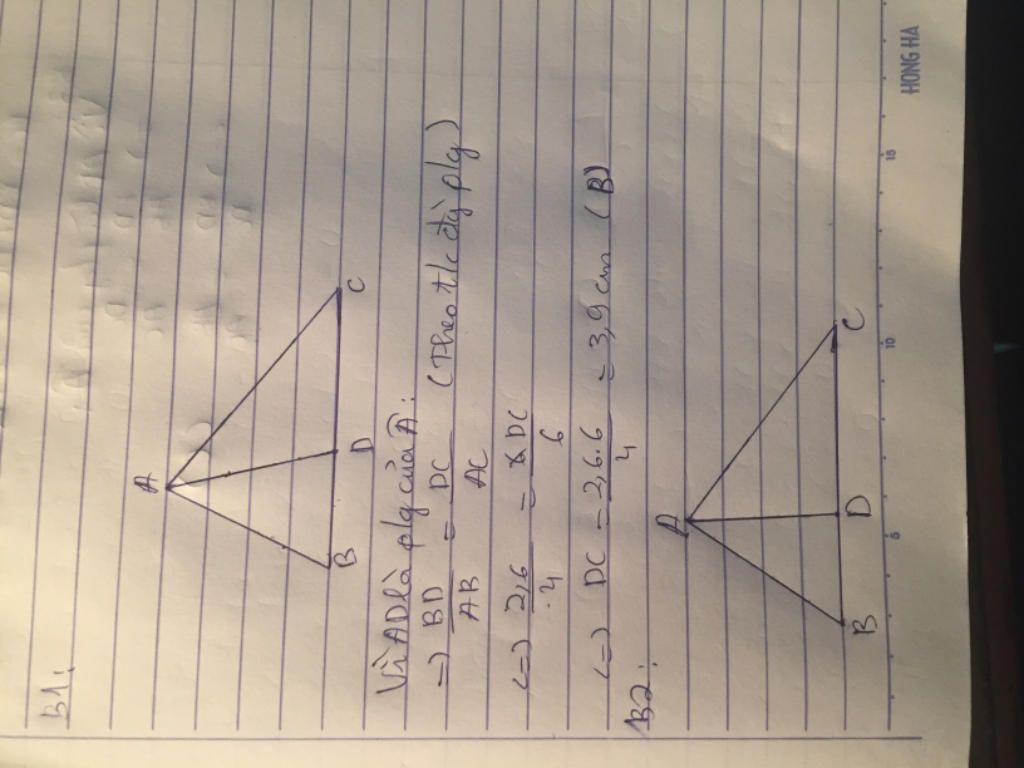 B1:
A
B
D
C
Vì AD là plg của Â:
=) BD/AB = DC/AC (Theo t/c đg plg)
(=) 2,6/4 = DC/6
(=) DC = 2,6.6/4 = 3,9 cm (B)
B2:
A
B
D
C
5
10
15
HONG HA